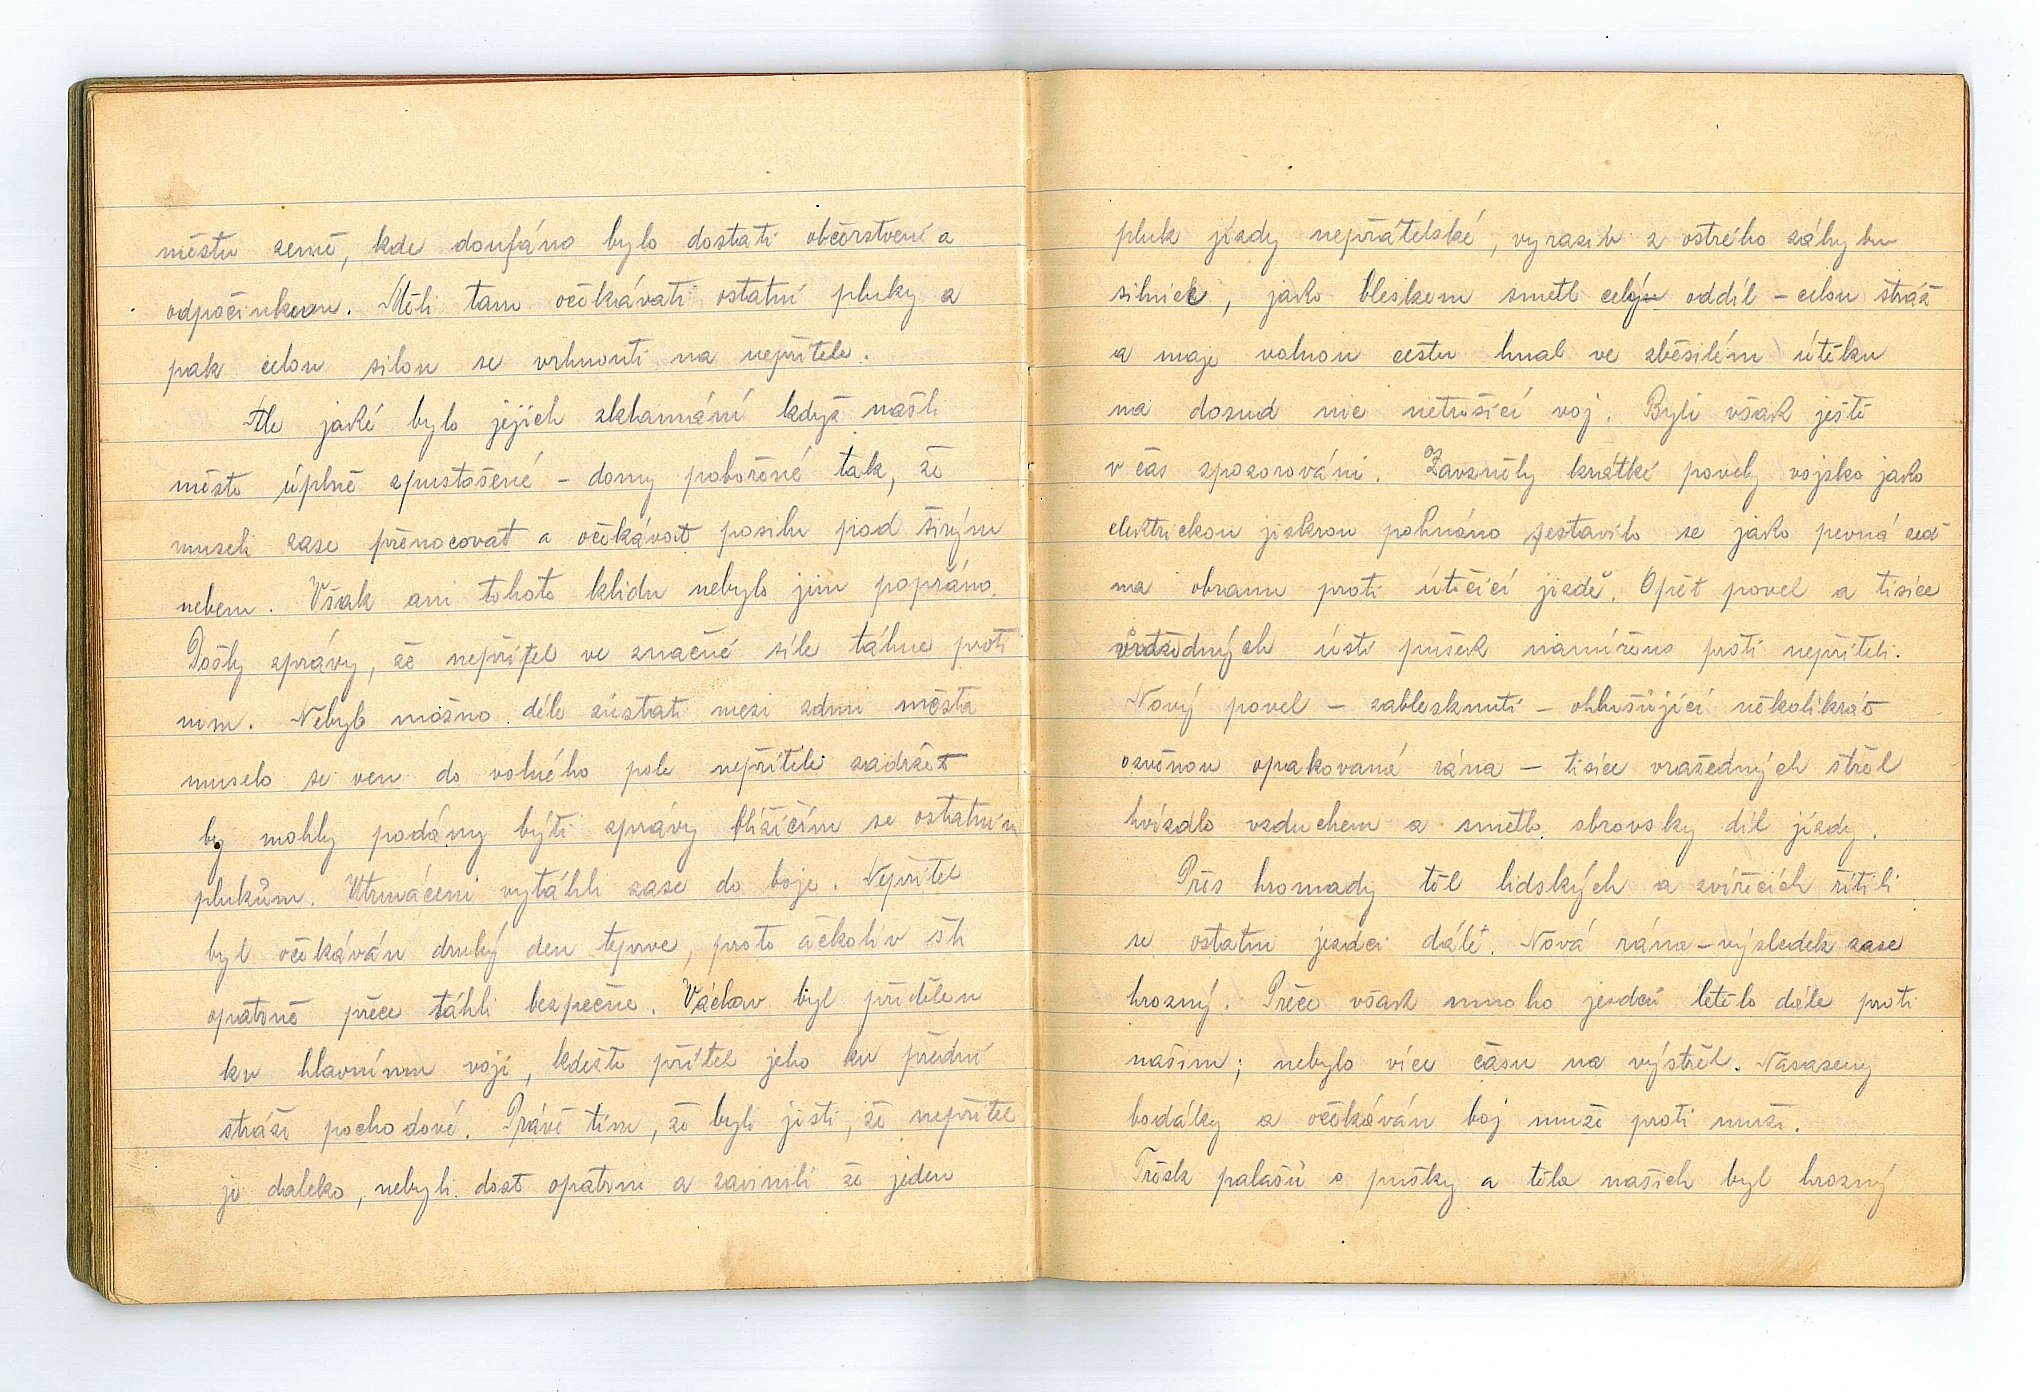 městu země, kde doufáno bylo dostati občerstvení a
odpočinkem. Měli tam očekávati ostatní pluky a
pak celou silou se vrhnouti na nepřítele.
Ale jaké bylo jejich zklamání když našli
město úplně zpustošené – domy pobořené tak, že
museli zase přenocovat a očekávat posilu pod širým
nebem. Však ani tohoto klidu nebylo jim popřáno.
Došly zprávy, že nepřítel ve značné síle táhne proti
nim. Nebylo možno déle zůstati mezi zdmi města
muselo se ven do volného pole nepřítele zadržet
by mohly podány býti zprávy blížícím se ostatním
plukům. Utrmáceni vytáhli zase do boje. Nepřítel
byl očekáván druhý den teprve, proto ačkoliv šli
opatrně přece táhli bezpečně. Václav byl přidělen
ku hlavnímu voji, kdežto přítel jeho ku přední
stráži pochodové. Právě tím, že byli jisti, že nepřítel
je daleko, nebyli dost opatrni a zavinili že jeden
pluk jízdy nepřátelské, vyrazib z ostrého záhybu
silnice, jako bleskem smetl celý oddíl – celou stráž
a maje volnou cestu hnal ve zběsilém útěku
na dosud nic netušící voj. Byli však ještě
v čas zpozorováni. Zavzněly krátké povely vojsko jako
elektrickou jiskrou pohnáno sestavilo se jako pevná zeď
na obranu proti útočící jízdě. Opět povel a tisíce
vražedných ústí pušek namířeno proti nepříteli.
Nový povel – zablesknutí – ohlušující několikrát
ozvěnou opakovaná rána – tisíce vražedných střel
hvízdlo vzduchem a smetlo obrovský díl jízdy.
Přes hromady těl lidských a zvířecích řítili
se ostatní jezdci dále. Nová rána – výsledek zase
hrozný. Přece však mnoho jezdců letělo dále proti
našim; nebylo více času na výstřel. Nasazeny
bodáky a očekáván boj muže proti muži.
Třesk palašů o pušky a těla našich byl hrozný